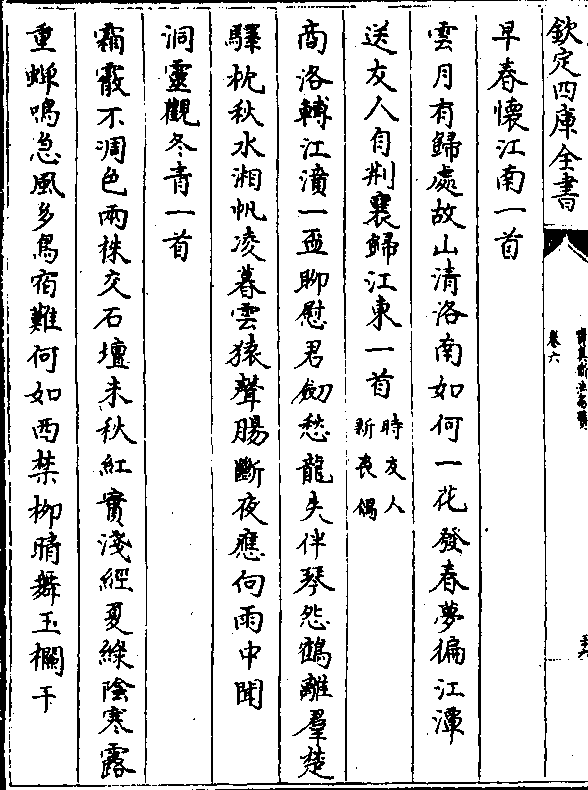 欽定四庫全書
卷六
早春懷江南一首
雲月有歸處故山清洛南如何一花發春夢徧江潭
送友人自荆襄歸江東一首時友人新喪偶
商洛轉江濆一盃聊慰君劒愁龍失伴琴怨鶴離羣楚
驛枕秋水湘帆凌暮雲猿聲腸斷夜應向雨中聞
洞靈觀冬青一首
霜霰不凋色兩株交石壇未秋紅實淺經夏綠陰寒露
重蟬鳴急風多鳥宿難何如西禁柳晴舞玉欄干